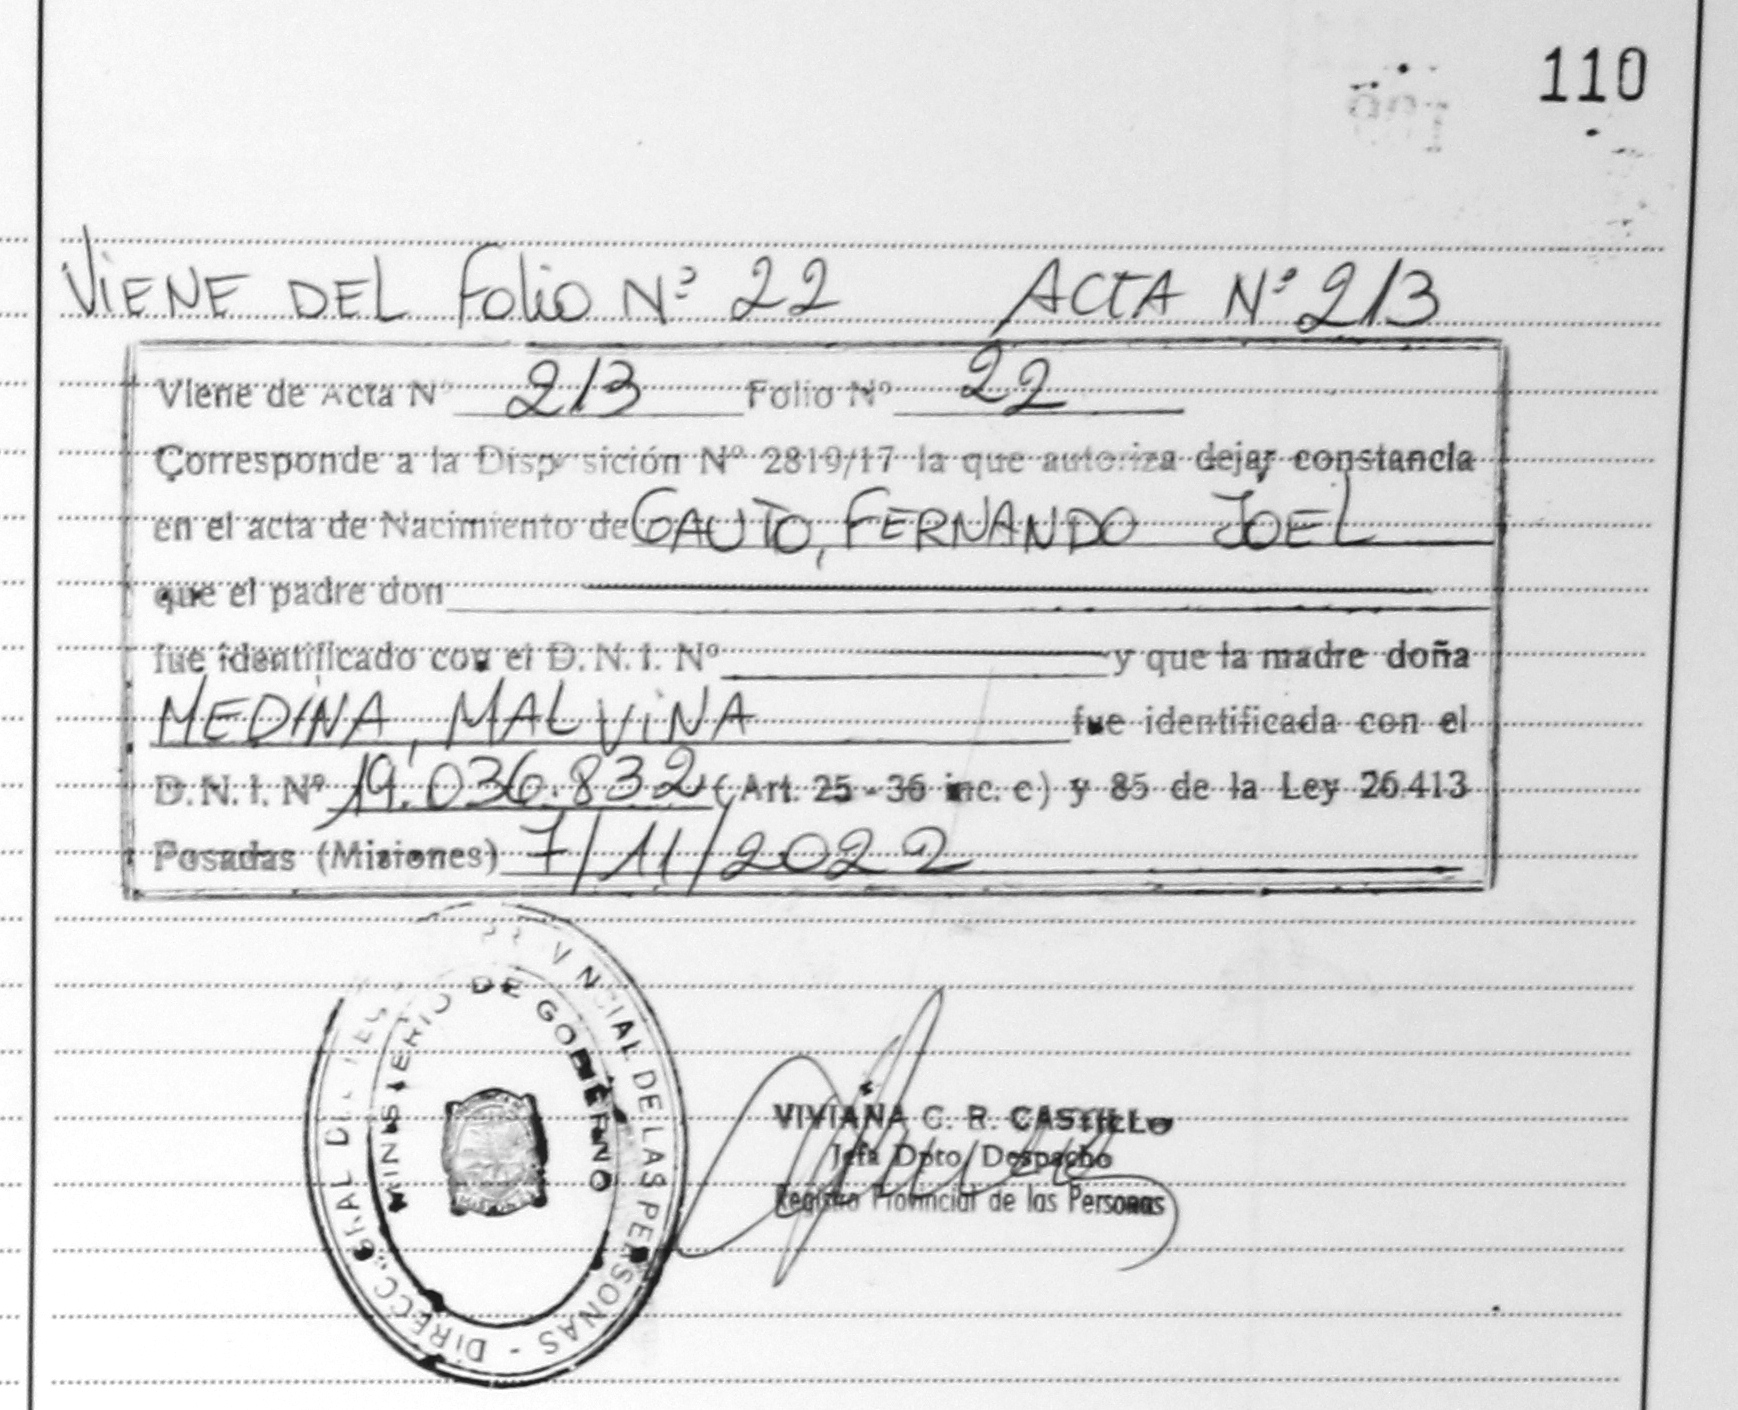 110
ViENE DEL Folio Nº 22 ACTA Nº 213
Viene de Acta Nº 213 Folio Nº 22
Corresponde a la Disposición Nº 2819/17 la que autoriza dejar constancia
en el acta de Nacimiento de GAUTO, FERNANDO JOEL
que el padre don
fue identificado con el D.N.I. Nº y que la madre doña
MEDINA, MALViNA fue identificada con el
D.N.I. Nº 19.036.832 (Art. 25 - 36 inc. c) y 85 de la Ley 26.413
Posadas (Misiones) 7/11/2022
PROVINCIAL DE LAS PERSONAS - DIRECC. GRAL DEL REG
MINISTERIO DE GOBIERNO
VIVIANA C. R. CASTILLO
Jefa Dpto. Despacho
Registro Provincial de las Personas